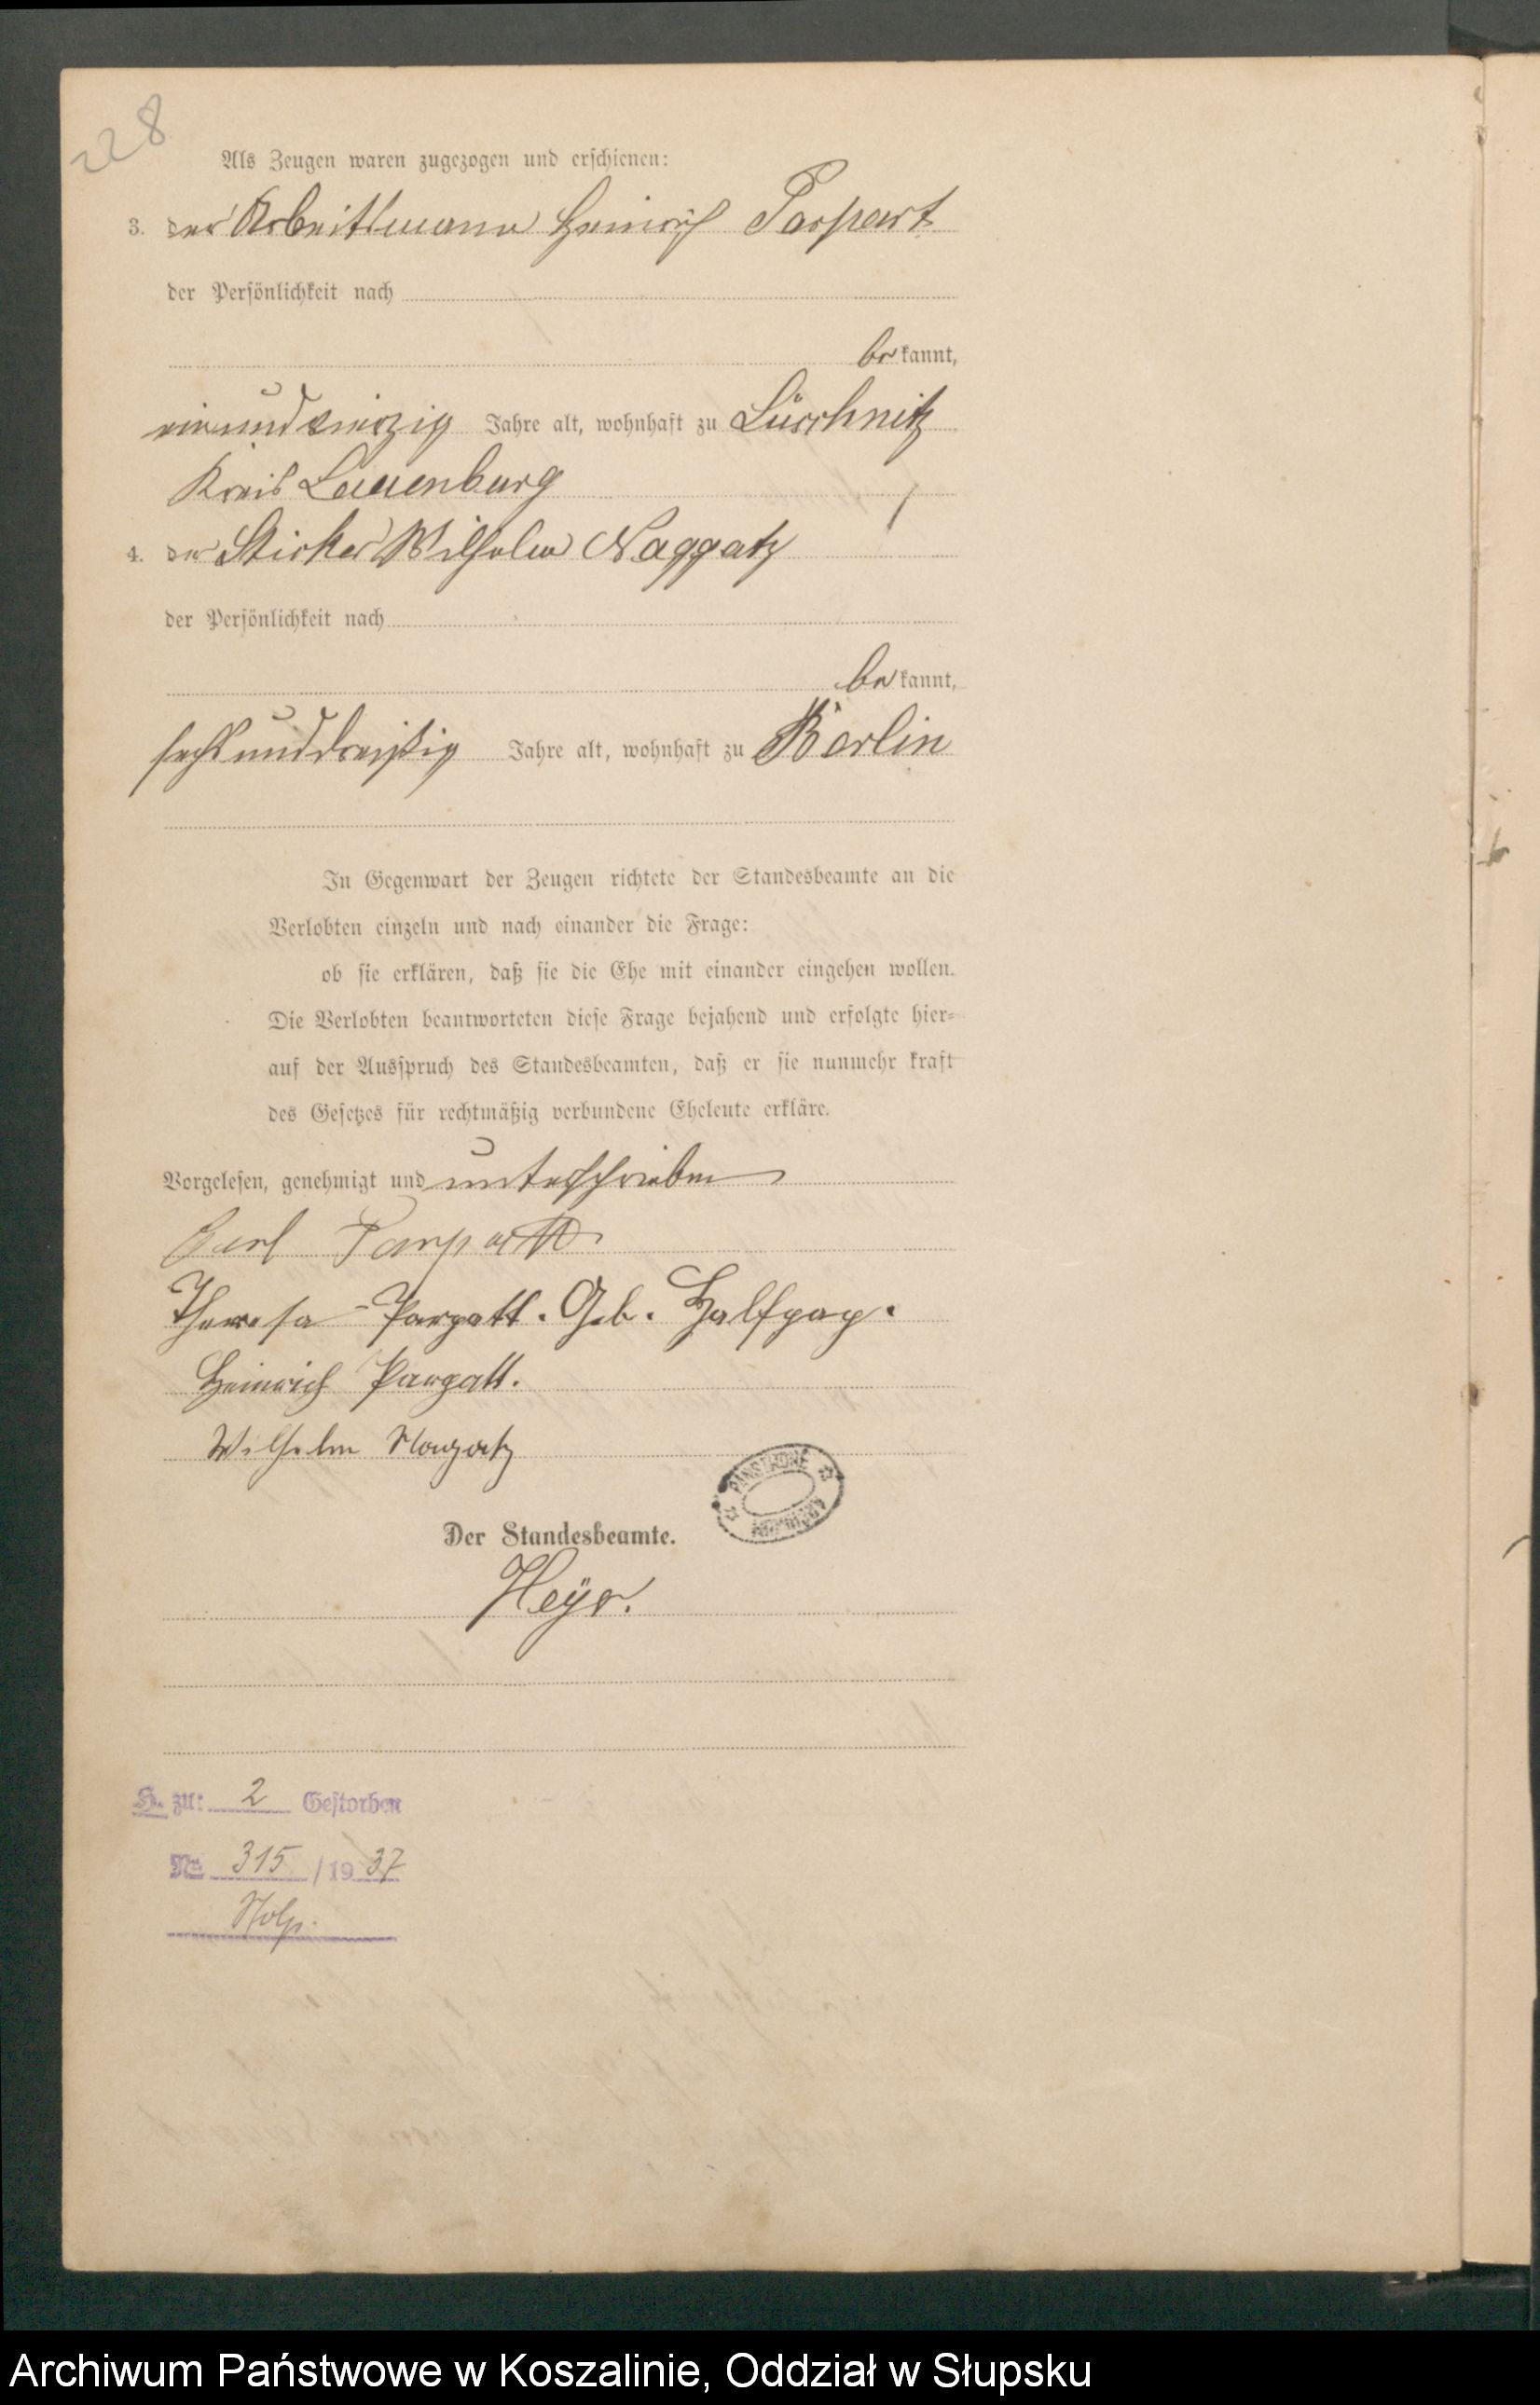 228
Als Zeugen waren zugezogen und erschienen:
3. der Arbeitsmann Heinrich Parpart
der Persönlichkeit nach
bekannt,
einundvierzig Jahre alt, wohnhaft zu Lüschnitz
Kreis Lauenburg
4. der Sticker Wilhelm Naggatz
der Persönlichkeit nach
bekannt,
sechsunddreißig Jahre alt, wohnhaft zu Berlin
In Gegenwart der Zeugen richtete der Standesbeamte an die
Verlobten einzeln und nach einander die Frage:
ob sie erklären, daß sie die Ehe mit einander eingehen wollen.
Die Verlobten beantworteten diese Frage bejahend und erfolgte hier-
auf der Ausspruch des Standesbeamten, daß er sie nunmehr kraft
des Gesetzes für rechtmäßig verbundene Eheleute erkläre.
Vorgelesen, genehmigt und unterschrieben
Carl Parpatt
Theresa Parpatt. Geb. Halfpap.
Heinrich Parpatt.
Wilhelm Naggatz
Der Standesbeamte.
Heyer.
H. zu: 2 Gestorben
Nr. 315 / 1937
Stolp.
Archiwum Państwowe w Koszalinie, Oddział w Słupsku